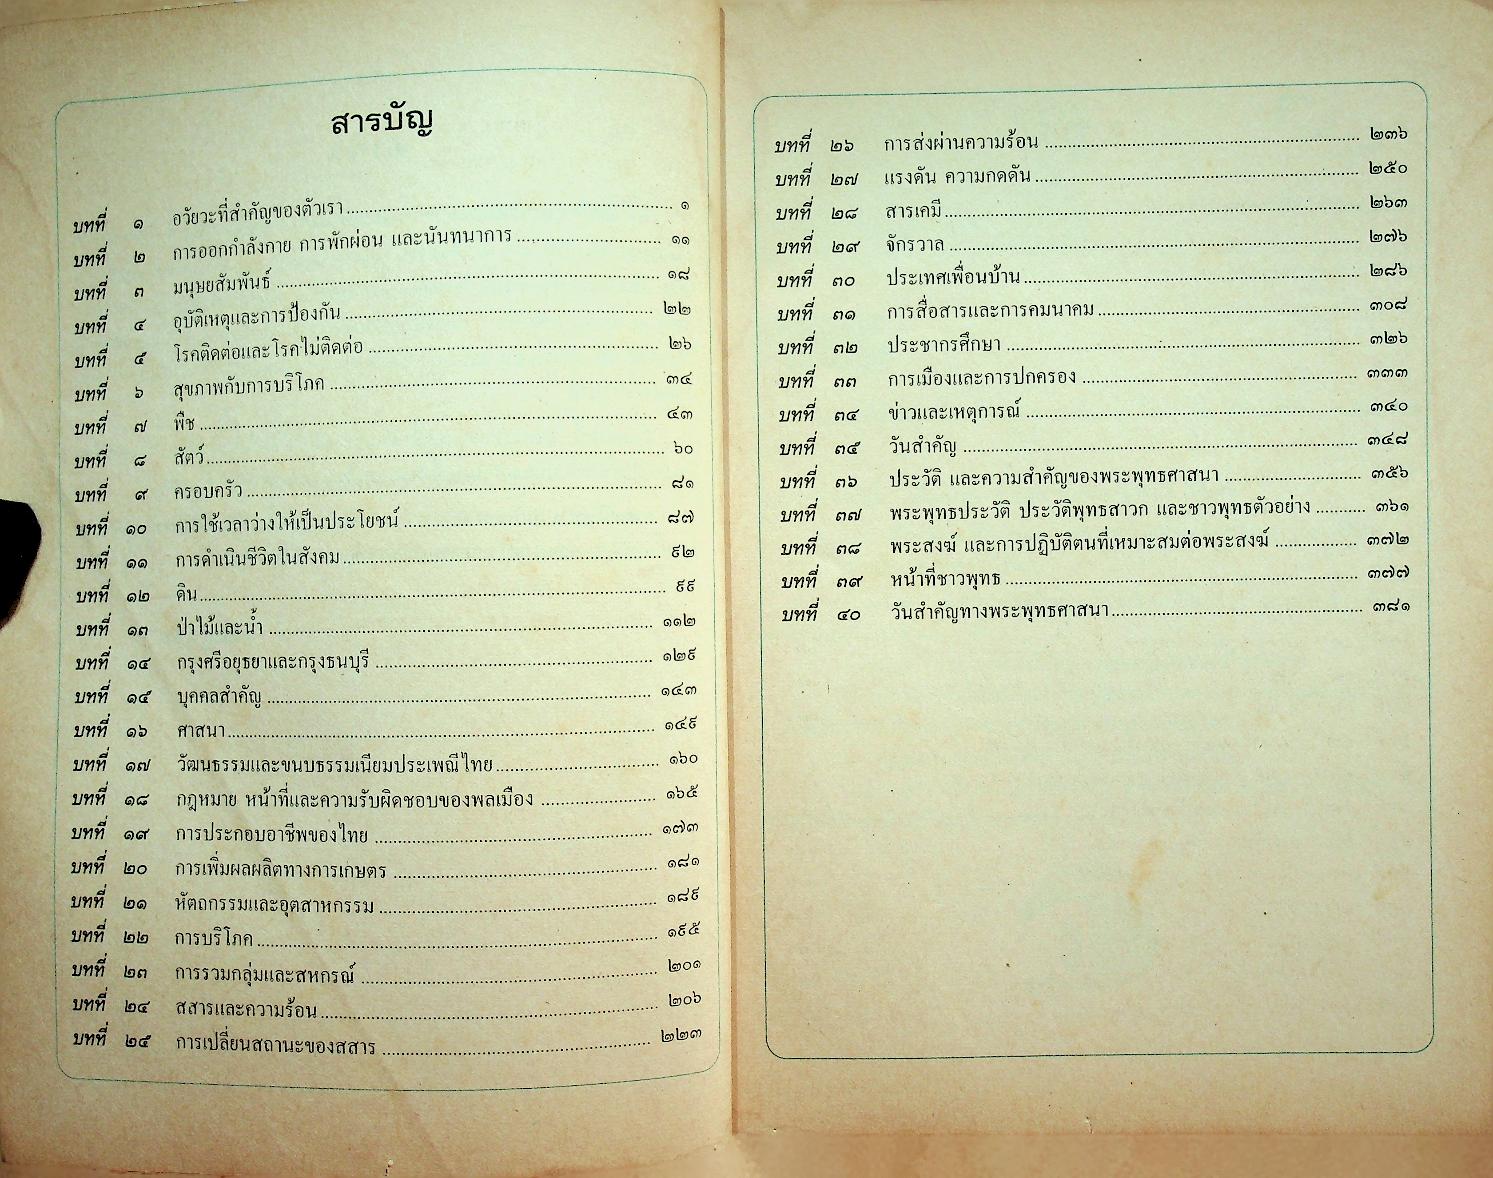 สารบัญ
บทที่ ๑ อวัยวะที่สำคัญของตัวเรา ๑
บทที่ ๒ การออกกำลังกาย การพักผ่อน และนันทนาการ ๑๑
บทที่ ๓ มนุษยสัมพันธ์ ๑๘
บทที่ ๔ อุบัติเหตุและการป้องกัน ๒๒
บทที่ ๕ โรคติดต่อและโรคไม่ติดต่อ ๒๖
บทที่ ๖ สุขภาพกับการบริโภค ๓๔
บทที่ ๗ พืช ๔๓
บทที่ ๘ สัตว์ ๖๐
บทที่ ๙ ครอบครัว ๘๑
บทที่ ๑๐ การใช้เวลาว่างให้เป็นประโยชน์ ๘๗
บทที่ ๑๑ การดำเนินชีวิตในสังคม ๙๒
บทที่ ๑๒ ดิน ๙๙
บทที่ ๑๓ ป่าไม้และน้ำ ๑๑๒
บทที่ ๑๔ กรุงศรีอยุธยาและกรุงธนบุรี ๑๒๙
บทที่ ๑๕ บุคคลสำคัญ ๑๔๓
บทที่ ๑๖ ศาสนา ๑๔๙
บทที่ ๑๗ วัฒนธรรมและขนบธรรมเนียมประเพณีไทย ๑๖๐
บทที่ ๑๘ กฎหมาย หน้าที่และความรับผิดชอบของพลเมือง ๑๖๕
บทที่ ๑๙ การประกอบอาชีพของไทย ๑๗๓
บทที่ ๒๐ การเพิ่มผลผลิตทางการเกษตร ๑๘๑
บทที่ ๒๑ หัตถกรรมและอุตสาหกรรม ๑๘๙
บทที่ ๒๒ การบริโภค ๑๙๕
บทที่ ๒๓ การรวมกลุ่มและสหกรณ์ ๒๐๑
บทที่ ๒๔ สสารและความร้อน ๒๐๖
บทที่ ๒๕ การเปลี่ยนสถานะของสสาร ๒๒๓
บทที่ ๒๖ การส่งผ่านความร้อน ๒๓๖
บทที่ ๒๗ แรงดัน ความกดดัน ๒๕๐
บทที่ ๒๘ สารเคมี ๒๖๓
บทที่ ๒๙ จักรวาล ๒๗๖
บทที่ ๓๐ ประเทศเพื่อนบ้าน ๒๘๖
บทที่ ๓๑ การสื่อสารและการคมนาคม ๓๐๘
บทที่ ๓๒ ประชากรศึกษา ๓๒๖
บทที่ ๓๓ การเมืองและการปกครอง ๓๓๓
บทที่ ๓๔ ข่าวและเหตุการณ์ ๓๔๐
บทที่ ๓๕ วันสำคัญ ๓๔๘
บทที่ ๓๖ ประวัติ และความสำคัญของพระพุทธศาสนา ๓๕๖
บทที่ ๓๗ พระพุทธประวัติ ประวัติพุทธสาวก และชาวพุทธตัวอย่าง ๓๖๑
บทที่ ๓๘ พระสงฆ์ และการปฏิบัติตนที่เหมาะสมต่อพระสงฆ์ ๓๗๒
บทที่ ๓๙ หน้าที่ชาวพุทธ ๓๗๗
บทที่ ๔๐ วันสำคัญทางพระพุทธศาสนา ๓๘๑